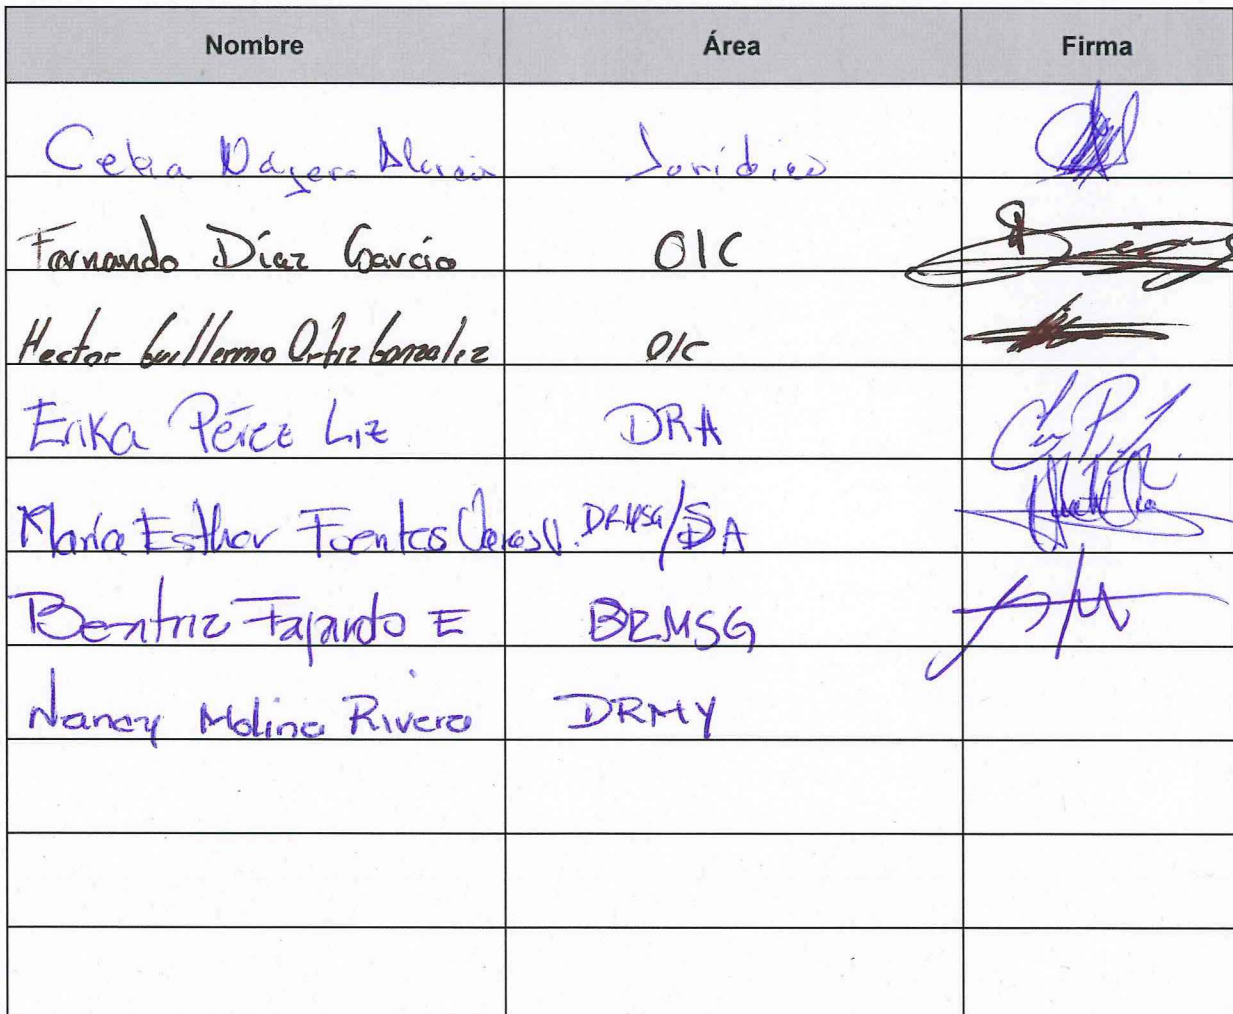 Nombre Área Firma
Celia Jurídico
Fernando Díaz García OIC
Hector Guillermo Ortiz Gonzalez OIC
Erika Pérez Liz DRA
María Esther Fuentes DRMSG/SA
Beatriz Fajardo E BRMSG
Nancy Molina Rivera DRMY